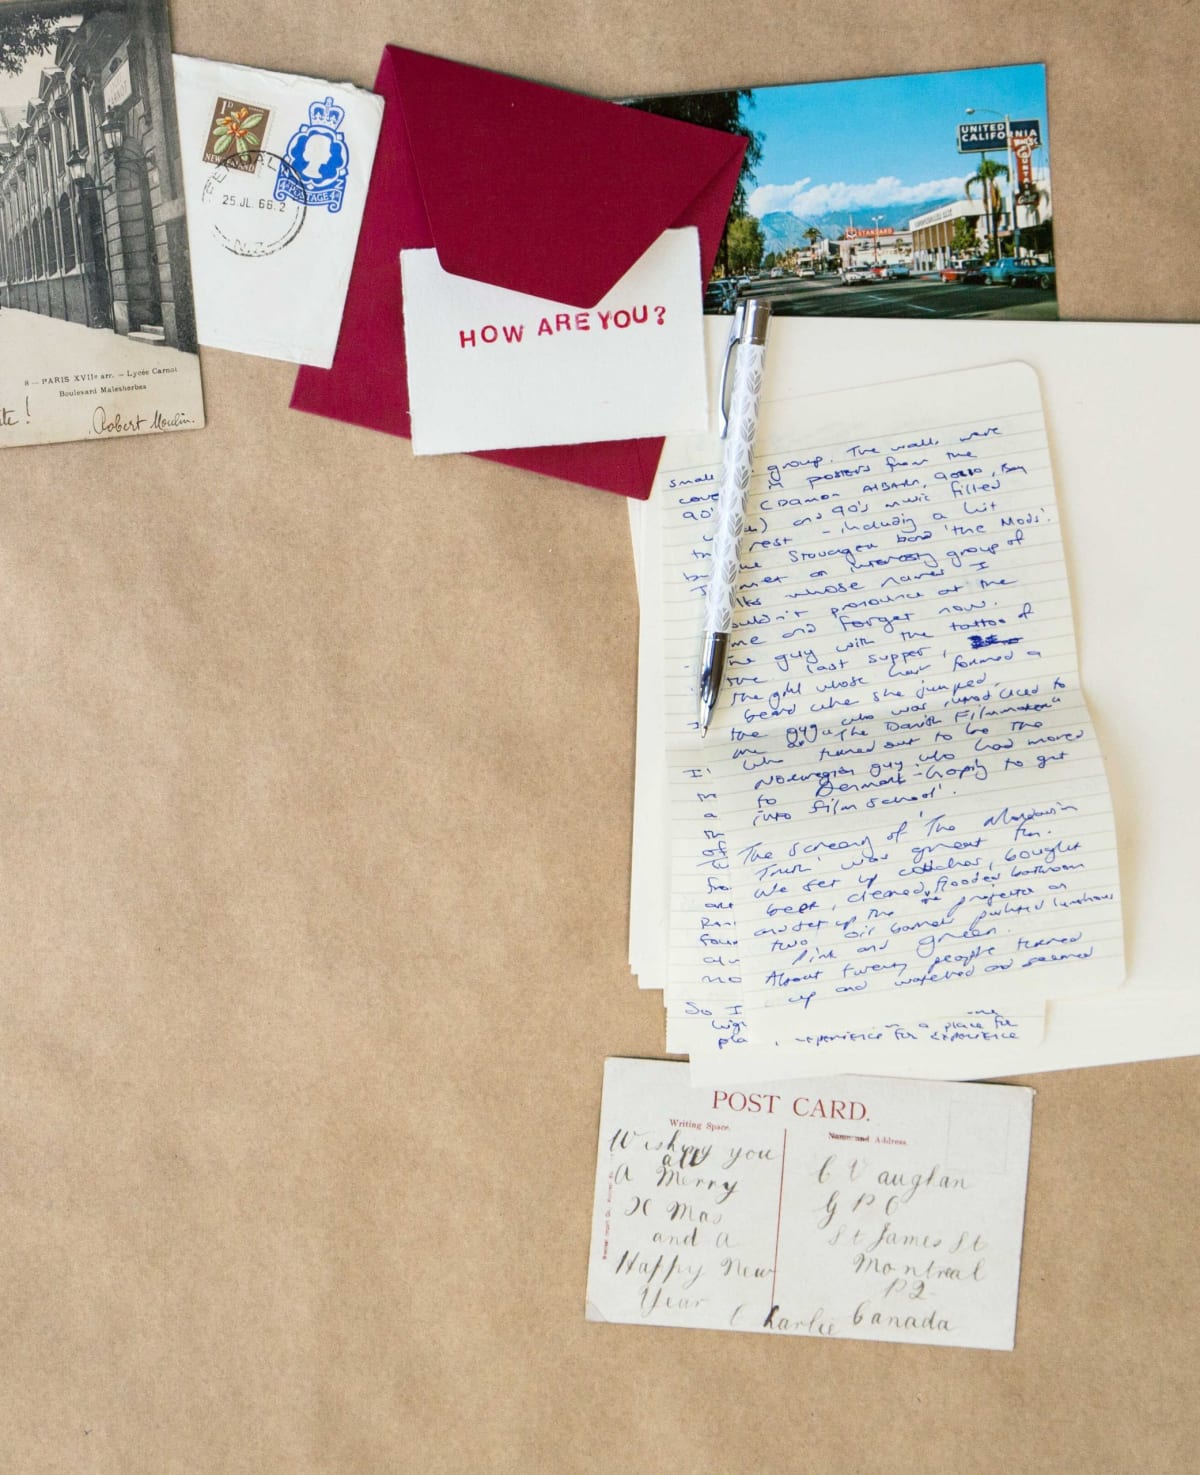 8 — PARIS XVIIe arr. — Lycée Carnot
Boulevard Malesherbes
Robert Moulin.
1D
NEW ZEALAND
4D POSTAGE 4D
25 JL. 66. 2
N.Z.
HOW ARE YOU?
UNITED
CALIFO NIA
STANDARD
small group. The walls were
in posters from the
90' (Damon Albarn,
) and 90's music filled
rest - including a hit
band 'the Mods'.
met an interesting group of
whose names I
pronounce at the
and forget now.
guy with the tattoo of
the last supper,
the girl whose hair formed a
beard when she jumped,
the guy who was introduced to
me as "The Danish Filmmaker"
who turned out to be the
Norwegian guy who had moved
to Denmark - hoping to get
into film school'.
The screening of 'The
Truth' was great fun.
We set up couches, bought
beer, cleaned the flooded bathroom
and set up the projector on
two oil barrels painted luminous
pink and green.
About twenty people turned
up and watched and seemed
So I
a place for
experience for experience
POST CARD.
Writing Space.
Name and Address.
Wishing you
all
A Merry
X Mas
and A
Happy New
Year
Charlie
C Vaughan
G P O
St James St
Montreal
P2
Canada